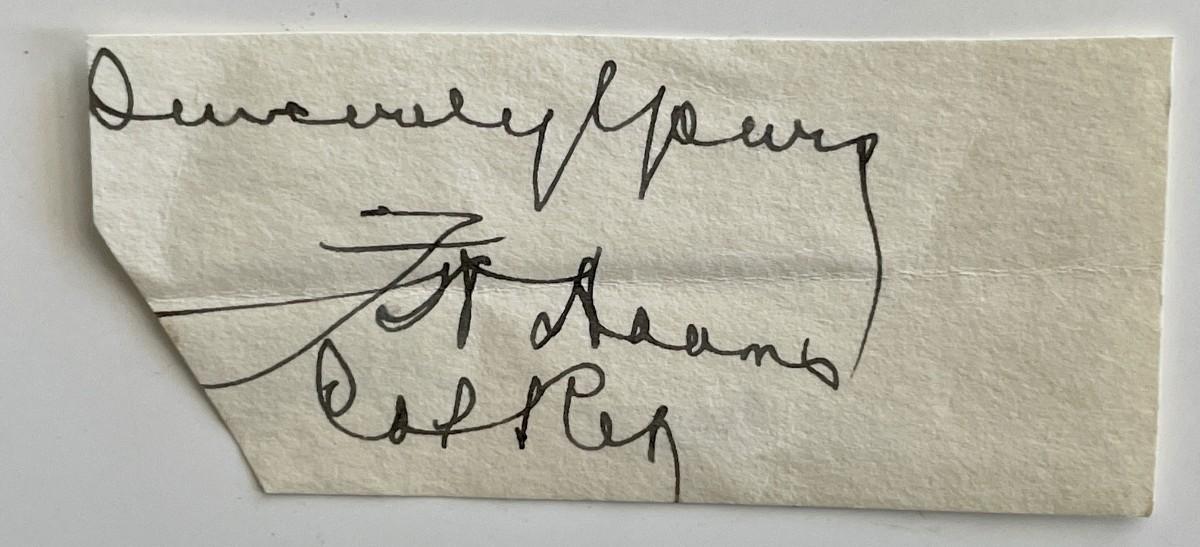 Sincerely Yours
F W Adams
Col Rep